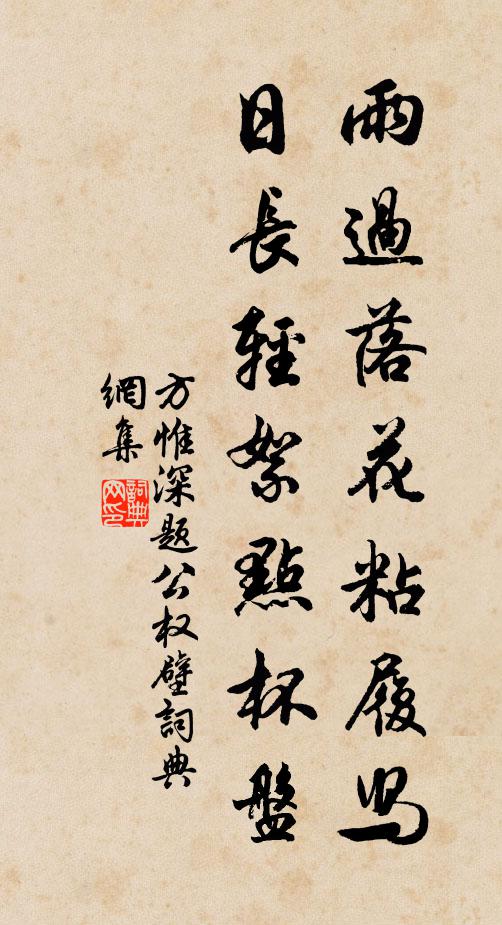 雨過落花粘履舄
日長輕絮點杯盤
方惟深題公权壁詞典
網集
詞典网印